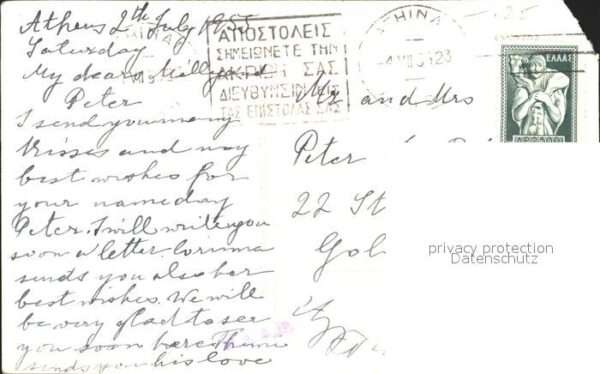 Athens 2th July 1955
Saturday
My dears Milly and
Peter
I send you many
kisses and my
best wishes for
your nameday
Peter. I will write you
soon a letter. Corinna
sends you also her
best wishes. We will
be very glad to see
you soon here.
sends you his love
ΑΠΟΣΤΟΛΕΙΣ
ΣΗΜΕΙΩΝΕΤΕ ΤΗΝ
ΑΚΡΙΒΗ ΣΑΣ
ΔΙΕΥΘΥΝΣΙΝ ΕΙΣ
ΤΑΣ ΕΠΙΣΤΟΛΑΣ ΣΑΣ
ΑΘΗΝΑΙ
ΕΛΛΑΣ
Mr and Mrs
Peter
22 St
Gol
privacy protection
Datenschutz